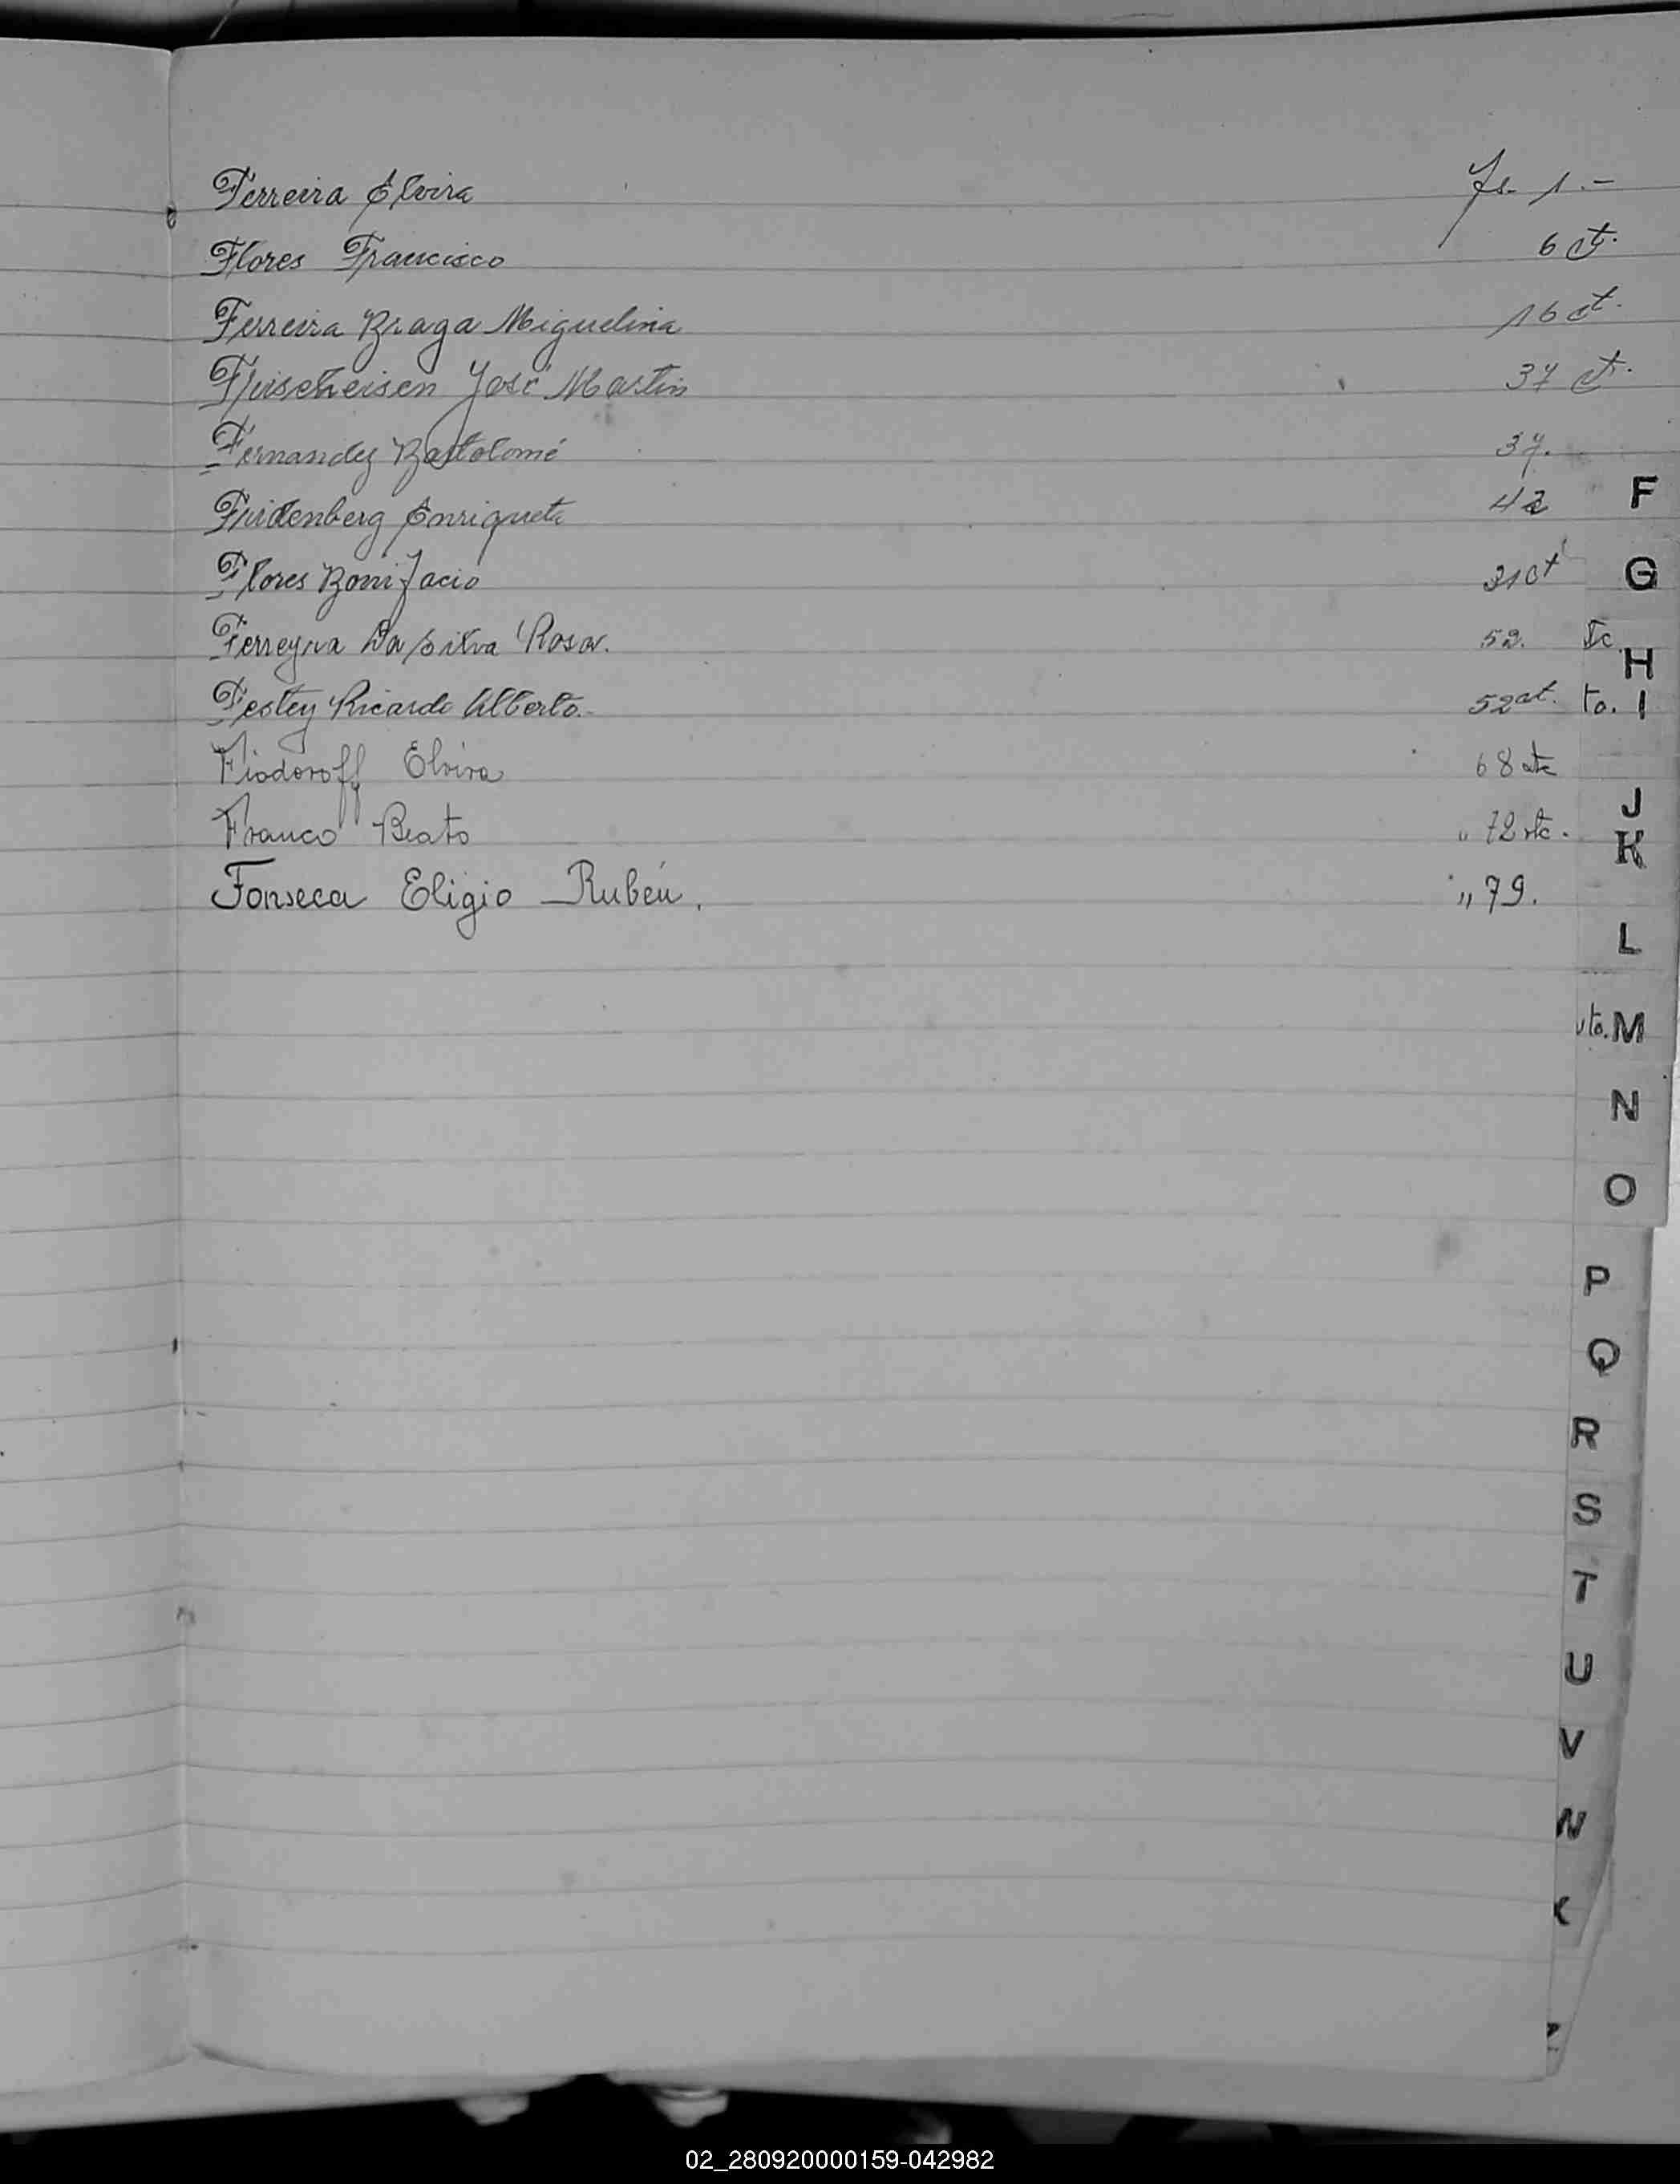 Ferreira Elvira fs. 1.-
Flores Francisco 6 ct.
Ferreira Braga Miguelina 16 ct.
José Martin 37 ct.
Fernandez Bartolomé 37.
Fridenberg Enriqueta 42
Flores Bonifacio 31 ct
Ferreyra Da Silva Rosa. 52.
Festey Ricardo Alberto.- 52 at.
Fiodoroff Elvira 68 vta
Franco Beato " 72 vta.
Fonseca Eligio Rubén. " 79.
F
G
H
to. I
J
K
L
vta. M
N
O
P
Q
R
S
T
U
V
02_280920000159-042982